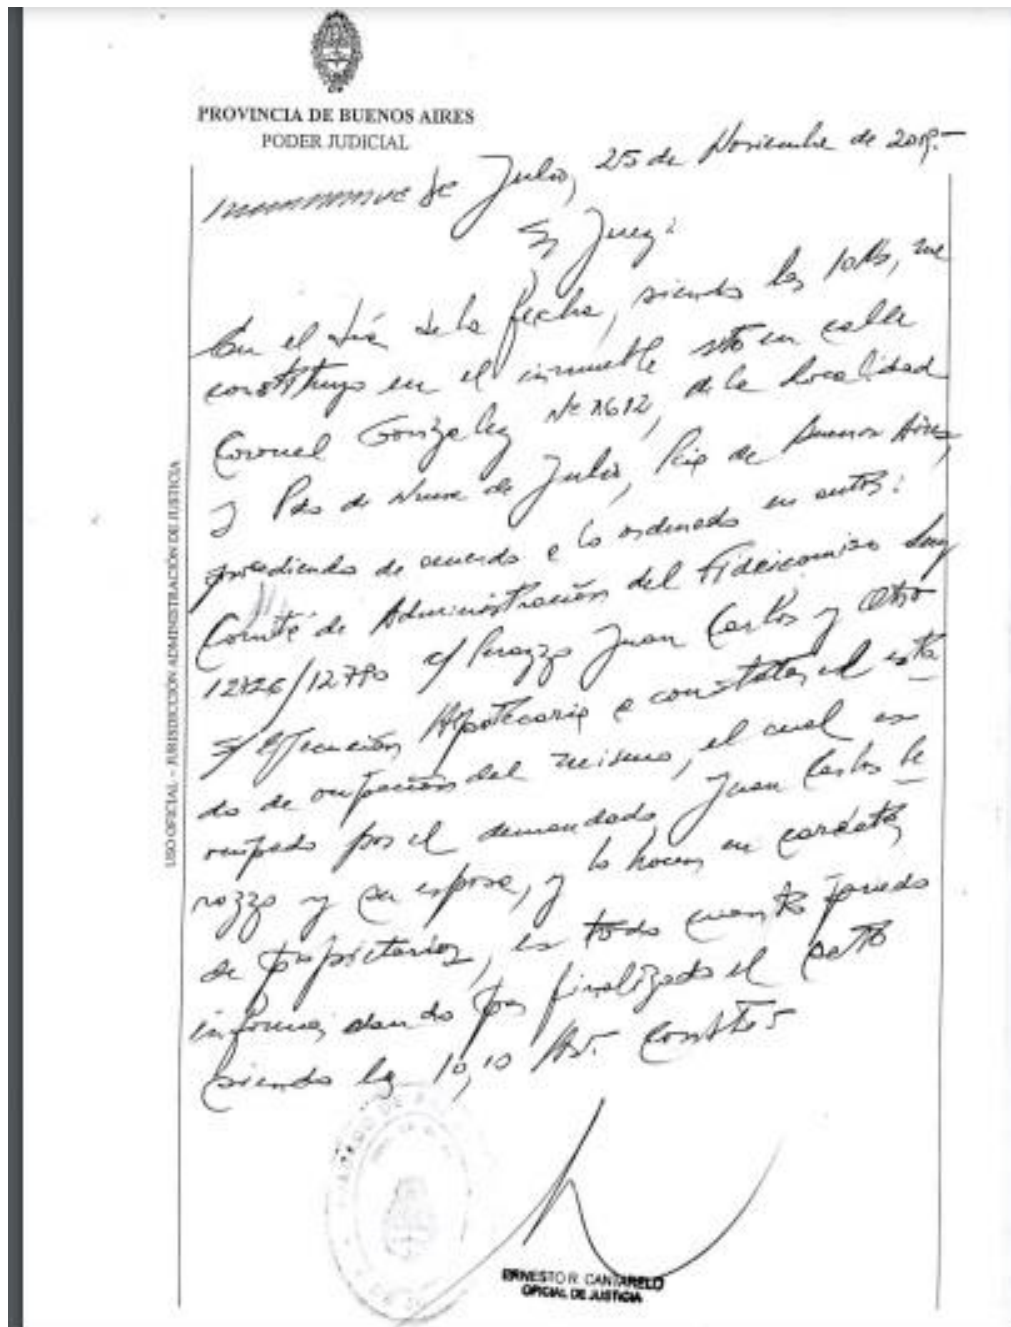 PROVINCIA DE BUENOS AIRES
PODER JUDICIAL
nueve de Julio, 25 de Noviembre de 2019.-
Sr Juez:
En el día de la fecha, siendo las 10 Hs, me
constituyo en el inmueble sito en calle
Coronel Gonzalez Nº 1612, de la Localidad
y Pdo de Nueve de Julio, Pcia de Buenos Aires,
procediendo de acuerdo a lo ordenado en autos:
Comité de Administración del Fideicomiso Ley
12726/12790 c/ Perozzo Juan Carlos y Otro
s/ Ejecución Hipotecaria a constatar el esta
do de ocupación del mismo, el cual es
ocupado por el demandado Juan Carlos Pe
rozzo y su esposa, y lo hacen en carácter
de propietarios, es todo cuanto puedo
informar dando por finalizado el acto
siendo las 10,10 Hs. Conste-
ERNESTO R. CANTARELO
OFICIAL DE JUSTICIA
USO OFICIAL – JURISDICCIÓN ADMINISTRACIÓN DE JUSTICIA